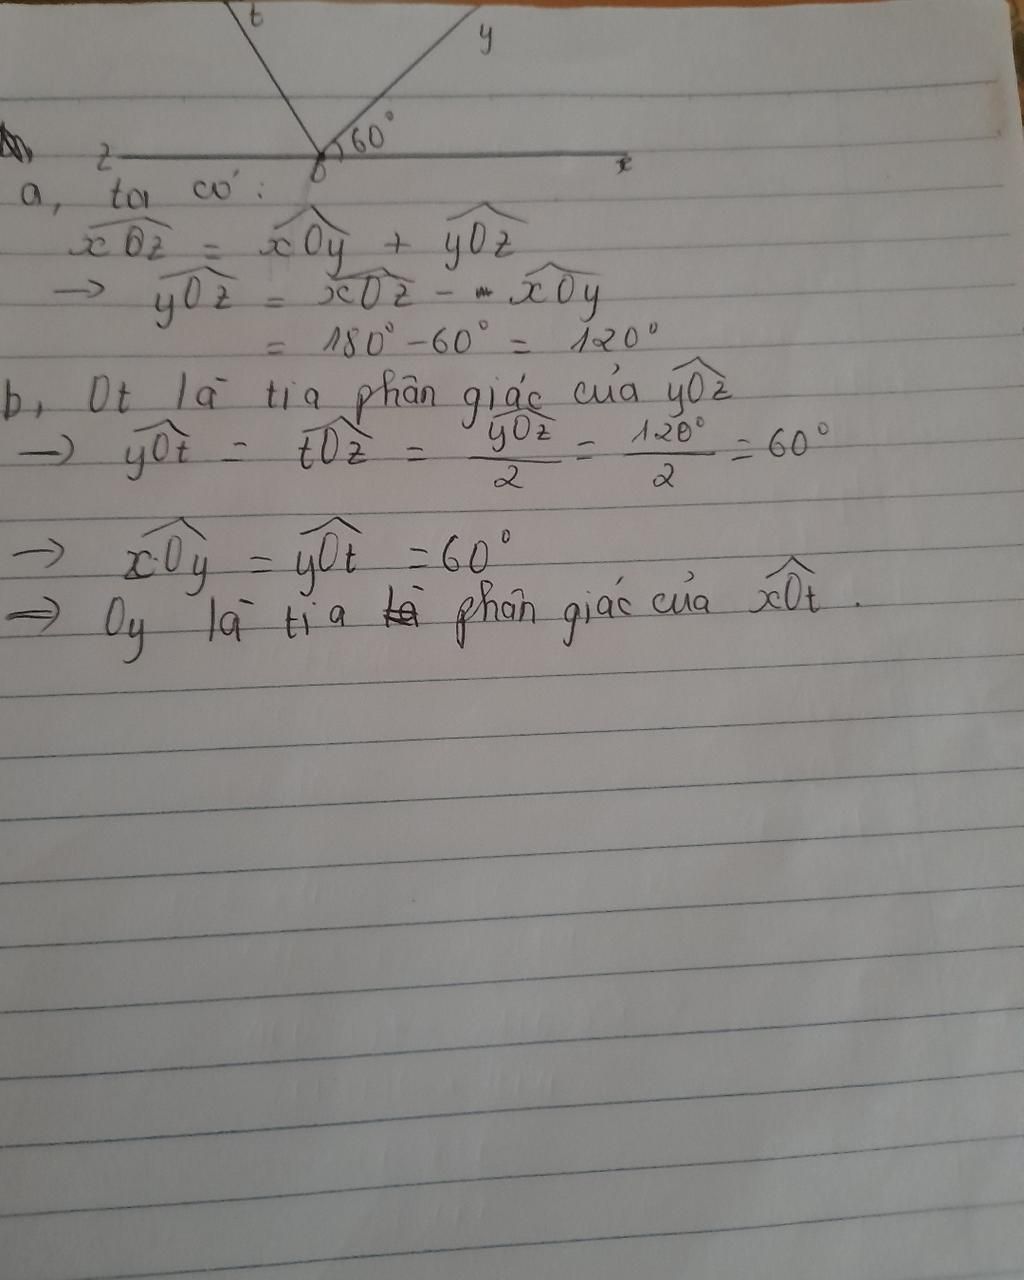 t
y
60°
z
O
x
a, ta có:
xOz = xOy + yOz
→ yOz = xOz - xOy
= 180° - 60° = 120°
b, Ot là tia phân giác của yOz
→ yOt = tOz = yOz/2 = 120°/2 = 60°
→ xOy = yOt = 60°
⇒ Oy là tia phân giác của xOt.